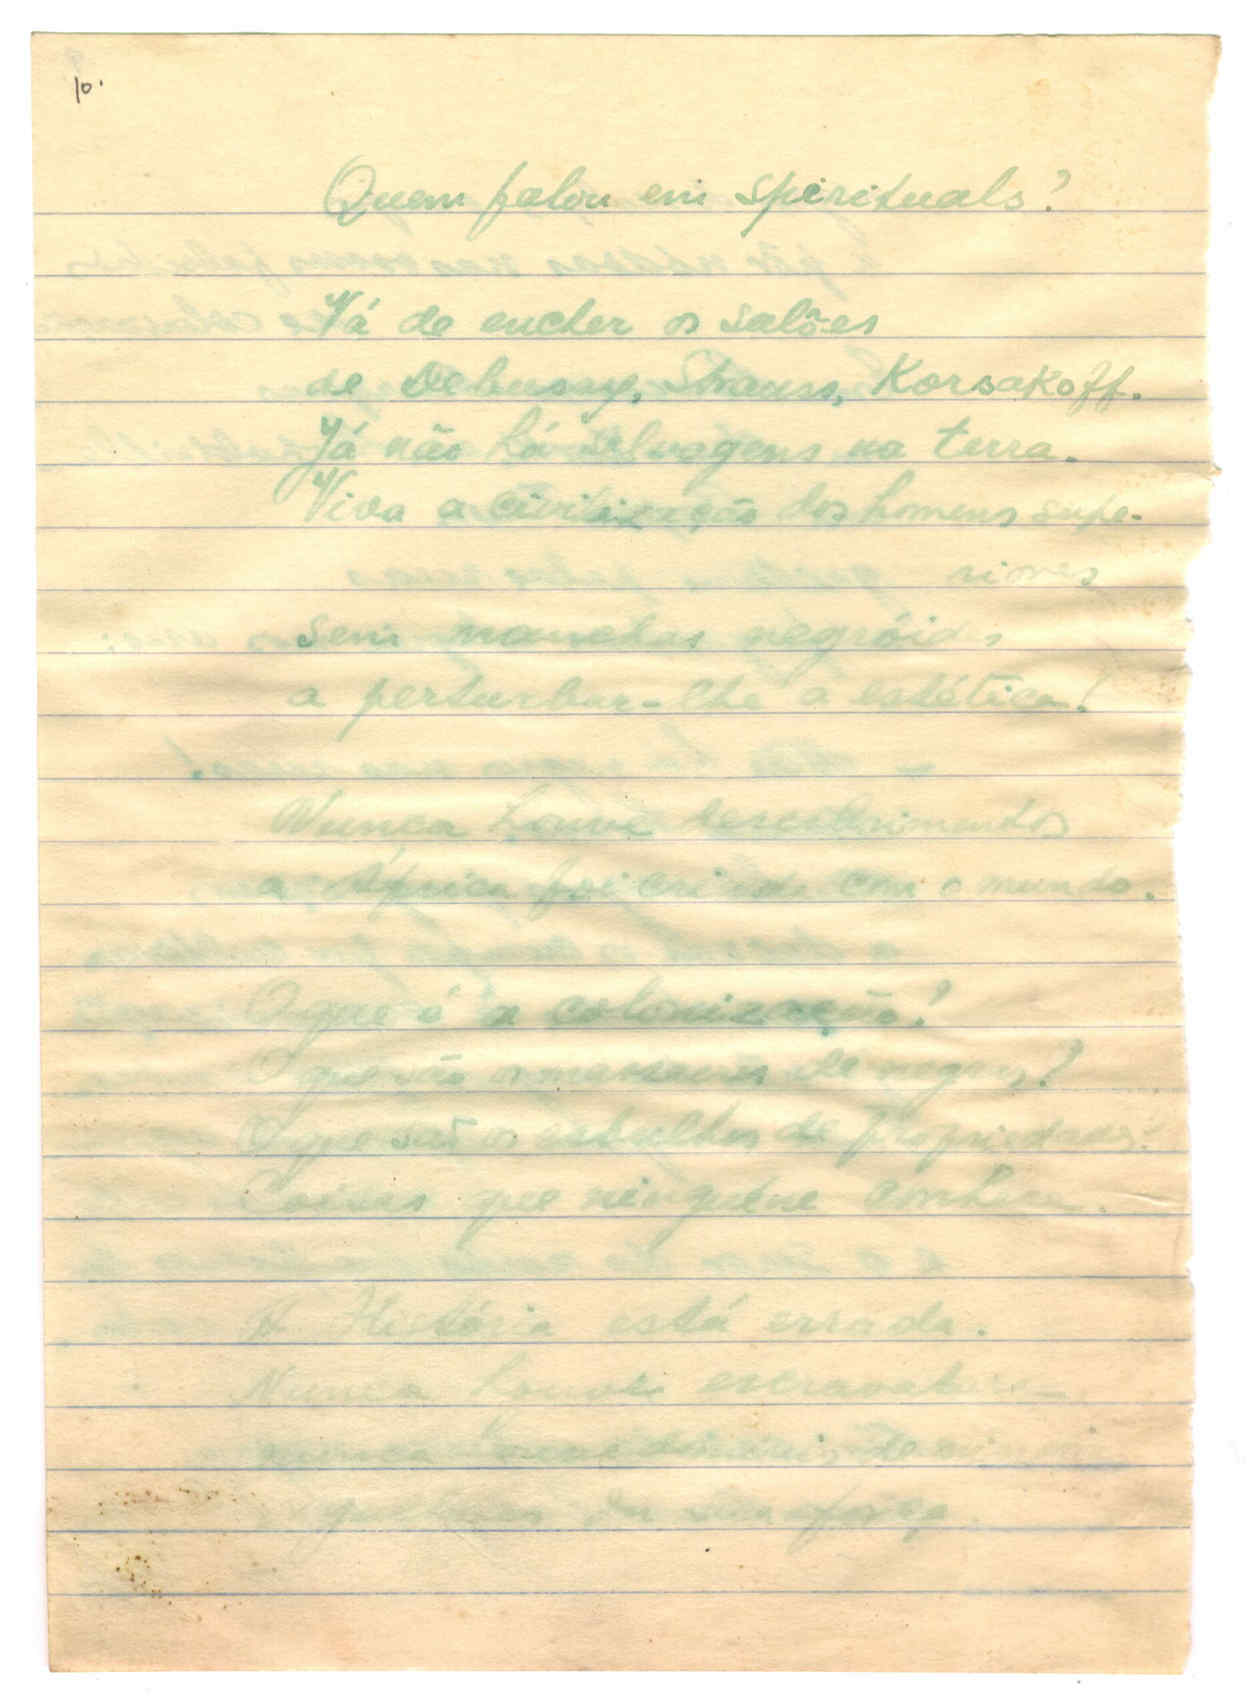 10.
Quem falou em spirituals?
Vá de encher os salões
de Debussy, Strauss, Korsakoff.
Já não há selvagens na terra.
Viva a civilização dos homens supe-
riores
sem manchas negróides
a perturbar-lhe a estética!
Nunca houve descobrimentos
a África foi criada com o mundo.
O que é a colonização?
O que são os massacres de negros?
O que são os esbulhos de propriedade?
Coisas que ninguém conhece.
A História está errada.
Nunca houve escravatura
nunca houve domínio de minorias
da sua força